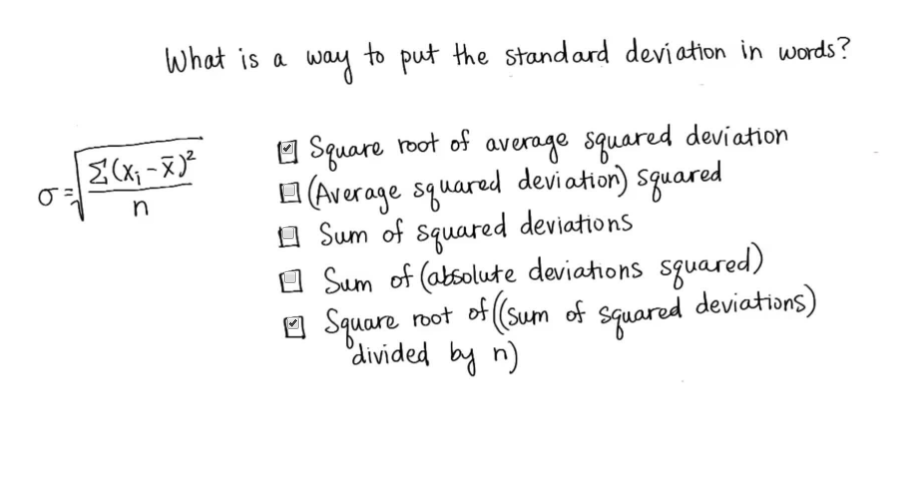 What is a way to put the standard deviation in words?
σ = √(Σ(xᵢ - x̄)² / n)
☑ Square root of average squared deviation
☐ (Average squared deviation) squared
☐ Sum of squared deviations
☐ Sum of (absolute deviations squared)
☑ Square root of ((sum of squared deviations)
divided by n)